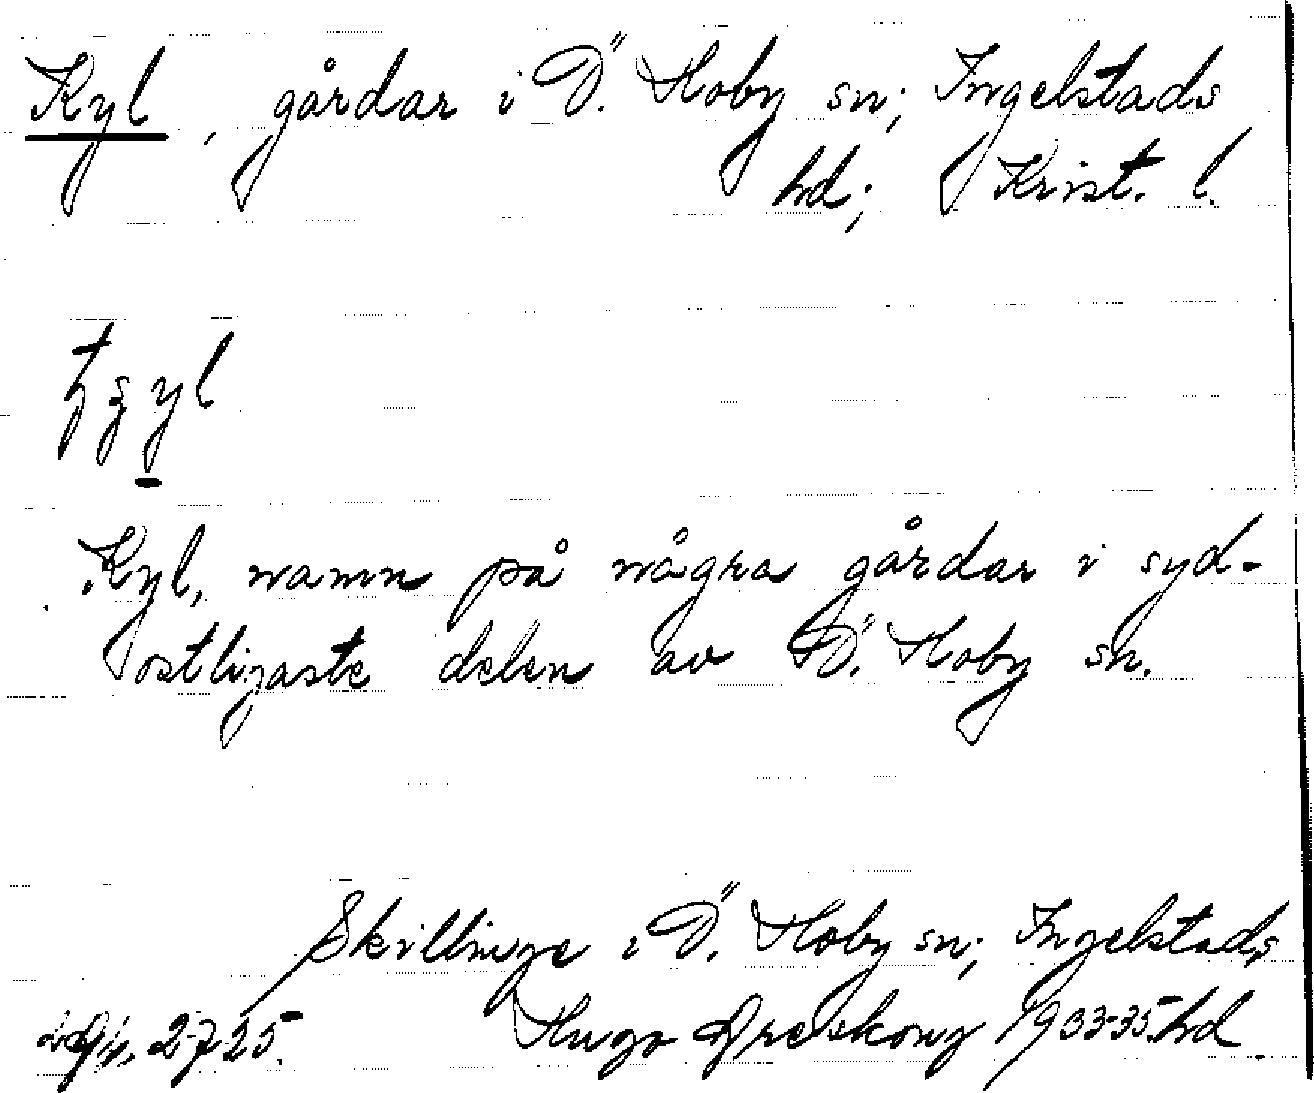 Kyl, gårdar i Ö. Hoby sn; Ingelstads
hd; Krist. l.
Kyl, namn på några gårdar i syd-
ostligaste delen av Ö. Hoby sn.
Skillinge i Ö. Hoby sn; Ingelstads
hd
2725. Hugo Areskoug 1933-35.